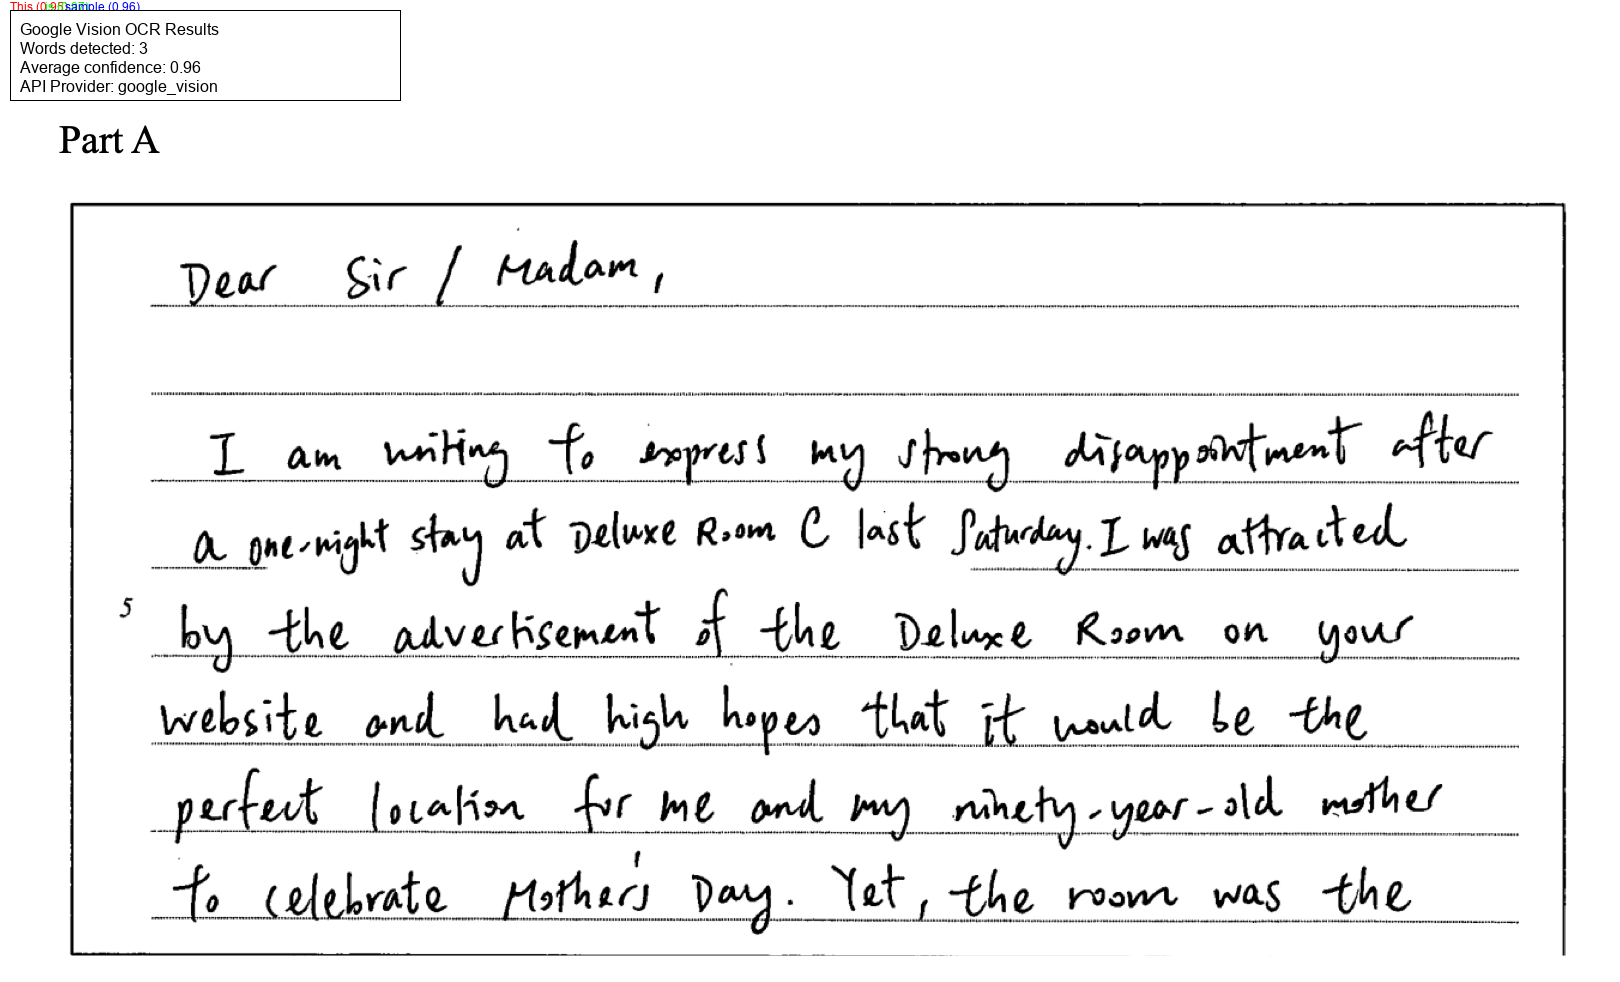 This (0.95) sample (0.96)
Google Vision OCR Results
Words detected: 3
Average confidence: 0.96
API Provider: google_vision
Part A
Dear Sir / Madam,
I am writing to express my strong disappointment after
a one-night stay at Deluxe Room C last Saturday. I was attracted
5 by the advertisement of the Deluxe Room on your
website and had high hopes that it would be the
perfect location for me and my ninety-year-old mother
to celebrate Mother's Day. Yet, the room was the